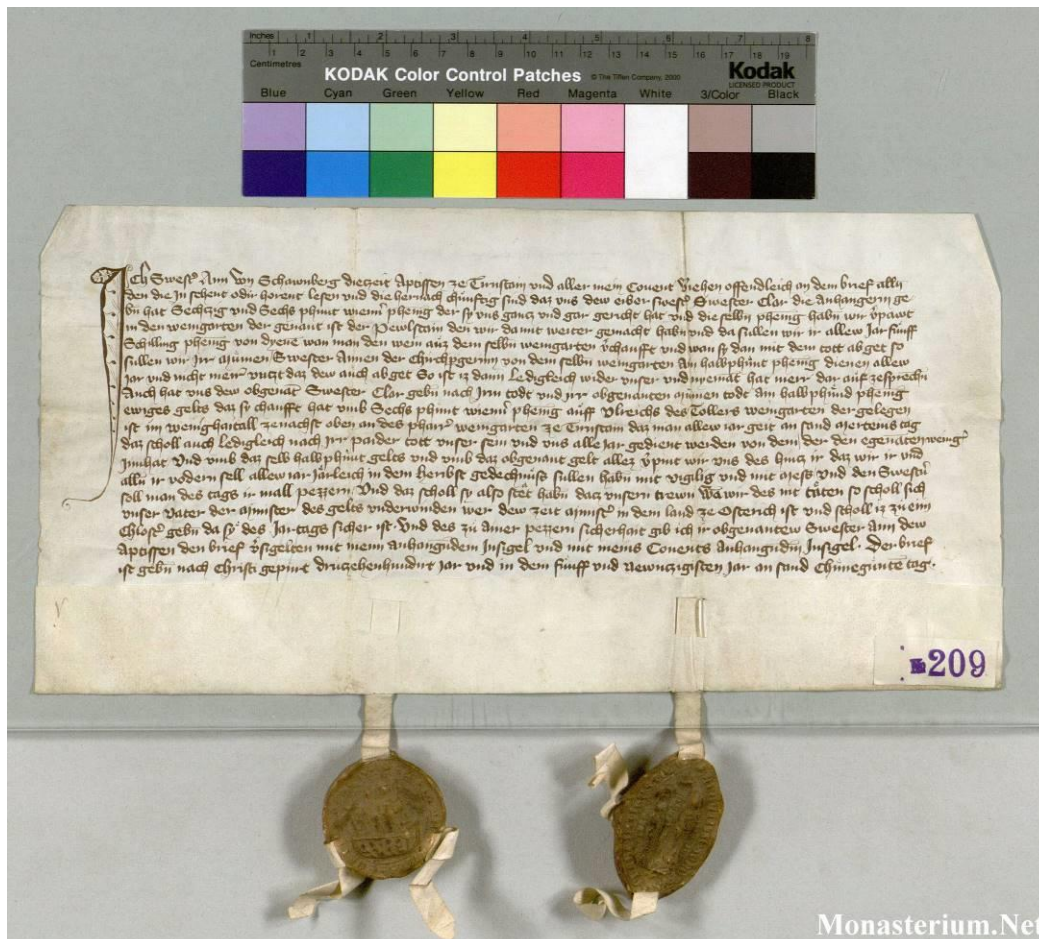 Inches 1 2 3 4 5 6 7 8
Centimetres 1 2 3 4 5 6 7 8 9 10 11 12 13 14 15 16 17 18 19
KODAK Color Control Patches © The Tiffen Company, 2000 Kodak
LICENSED PRODUCT
Blue Cyan Green Yellow Red Magenta White 3/Color Black
Ich Swest Ann von Schawnberg diezeit Aptissen ze Tirnstain und aller mein Convent Viehen offendleich an dem brief allen
den die in sehent odir horent lesen und die hernach chunftig sind daz uns dew erber swest Swester Clar die Anhangerin ge
ben hat Sechtzig und Sechs phunt wienn phenig der sy uns gantz und gar gericht hat und die selben phenig habn wir vpawt
in den weingarten der genant ist der Pewlstain den wir damit weiter gemacht habn und da sullen wir ir allew Jar funff
Schilling phenig von dyenn wan man den wein auz dem selbn weingarten vchaufft und wan sy dan mit dem tott abget so
sullen wir irr mumen Swester Annen der Chirchpgerinn von dem selbn weingarten Ain halbphunt phenig dienen allew
Jar und nicht menr untzt daz dew auch abget So ist iz dann ledigleich wider unser und niemat hat merr dar auf zesprechn
Auch hat uns dew obgenat Swester Clar gebn nach Irm todt und irr obgenanten mumen todt Ain halbphund phenig
ewigs gelts daz sy chaufft hat umb Sechs phunt wienn phenig auff Ulreichs des Tollers weingarten der gelegen
ist im weinghaitall zenachst oben an des pharr weingarten ze Tirnstain daz man allew iar geit an sand mertens tag
daz scholl auch ledigleich nach irr paider tott unser sein und uns alle iar gedient werden von dem der den egenaten weing
innhat Und umb daz selb halbphunt gelts und umb daz obgenant gelt allez vpint wir uns des hintz ir daz wir ir und
alln ir vodern sell allew iar jarleich in dem herbst gedechnuss sullen habn mit vigilig und mit mess und den Swestn
soll man des tags ir mall pezzern Und daz scholl sy also stet habn datz unsern trewn Wa wir des nit taten so scholl sich
unser vater der minster des gelts underwinden wer dew zeit minist in dem land ze Osterich ist und scholl iz zu eim
Chlost gebn da sy des Jartags sicher ist Und des zu ainer pezzern sicherhait gib ich ir obgenantew Swester Ann dew
Aptissen den brief vsigelten mit meim anhangundem Insigel und mit meins Convents Anhangundm Insigel. Der brief
ist gebn nach Christi gepurt drutzehenhundirt Jar und in dem funff und newntzigisten Jar an sand Chunegunte tag.
№ 209
Monasterium.Net